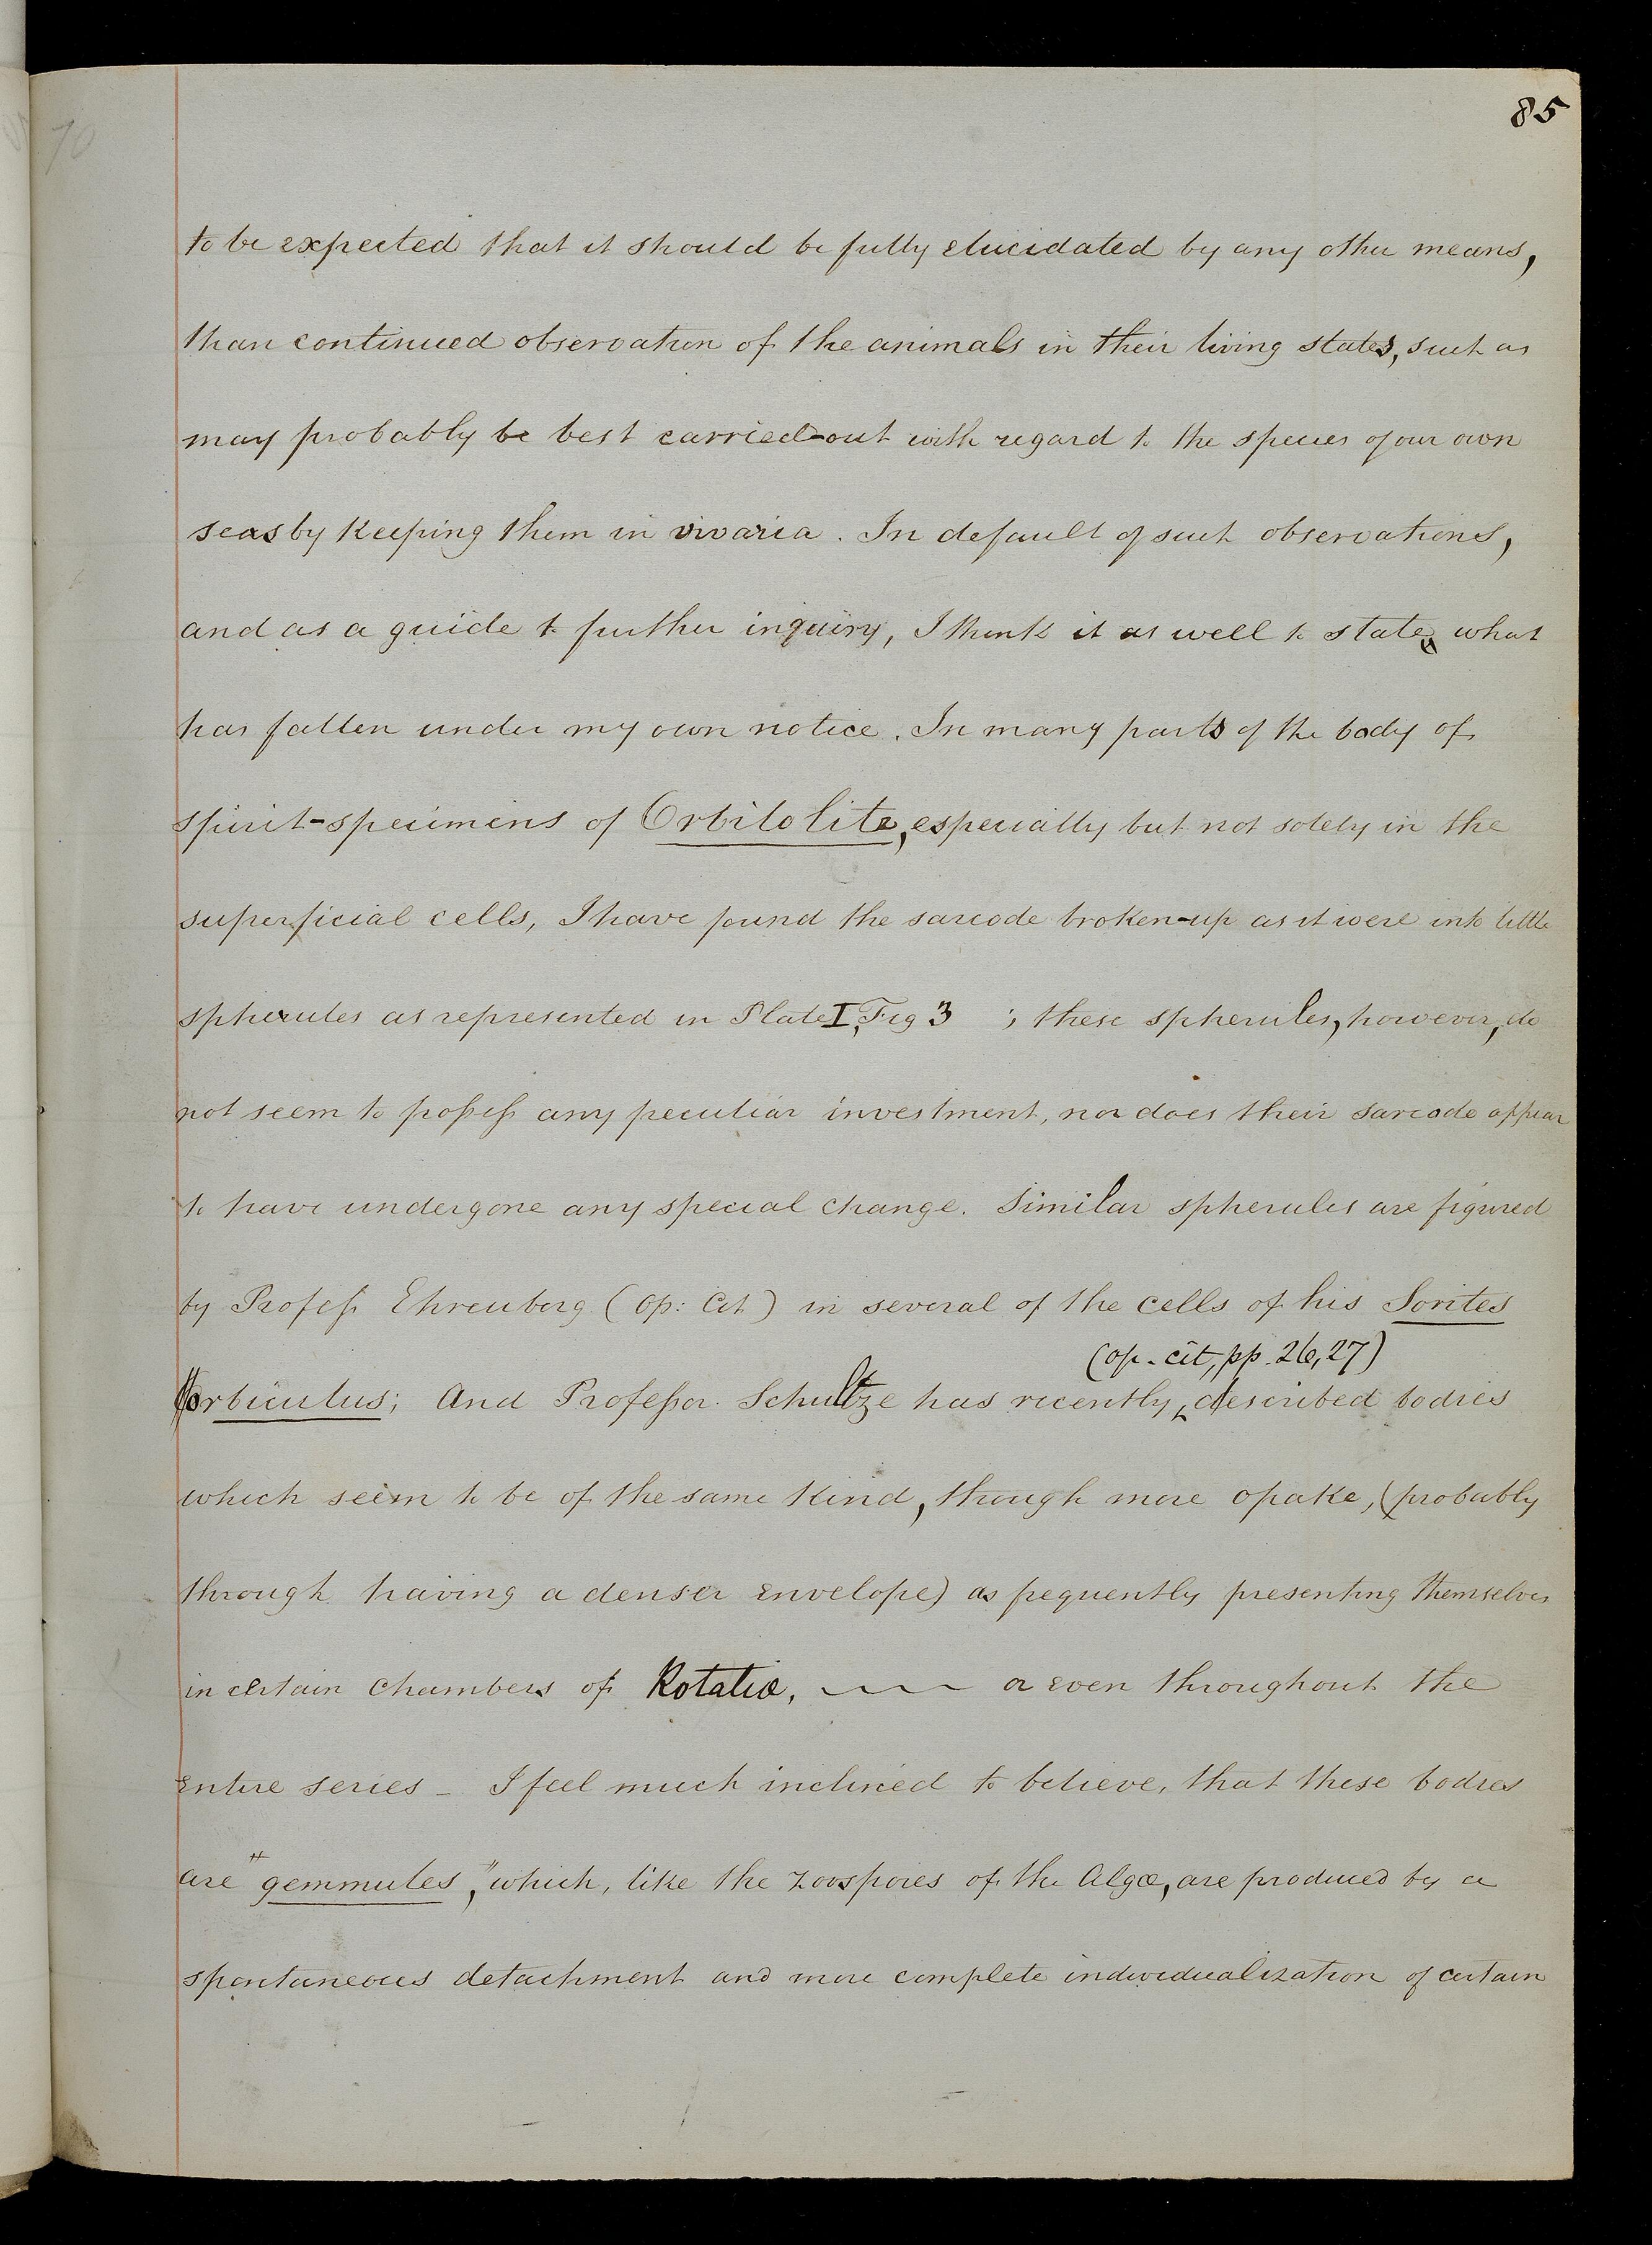 85
to be expected that it should be fully elucidated by any other means,
than continued observation of the animals in their living states, such as
may probably be best carried-out with regard to the species of our own
seas by keeping them in vivaria. In default of such observations,
and as a guide to further inquiry, I think it as well to state what
has fallen under my own notice. In many parts of the body of
spirit-specimens of Orbitolite, especially but not solely in the
superficial cells, I have found the sarcode broken-up as it were into little
spherules as represented in Plate I, Fig 3 ; these spherules, however, do
not seem to possess any peculiar investment, nor does their sarcode appear
to have undergone any special change. Similar spherules are figured
by Profess Ehrenberg (op: cit) in several of the cells of his Sorites
(op. cit, pp. 26, 27)
orbiculus; and Professor Schultze has recently, described bodies
which seem to be of the same kind, though more opake, (probably
through having a denser envelope) as frequently presenting themselves
in certain chambers of Rotaliæ, or even throughout the
entire series - I feel much inclined to believe, that these bodies
are "gemmules," which, like the zoospores of the Algæ, are produced by a
spontaneous detachment and more complete individualization of certain